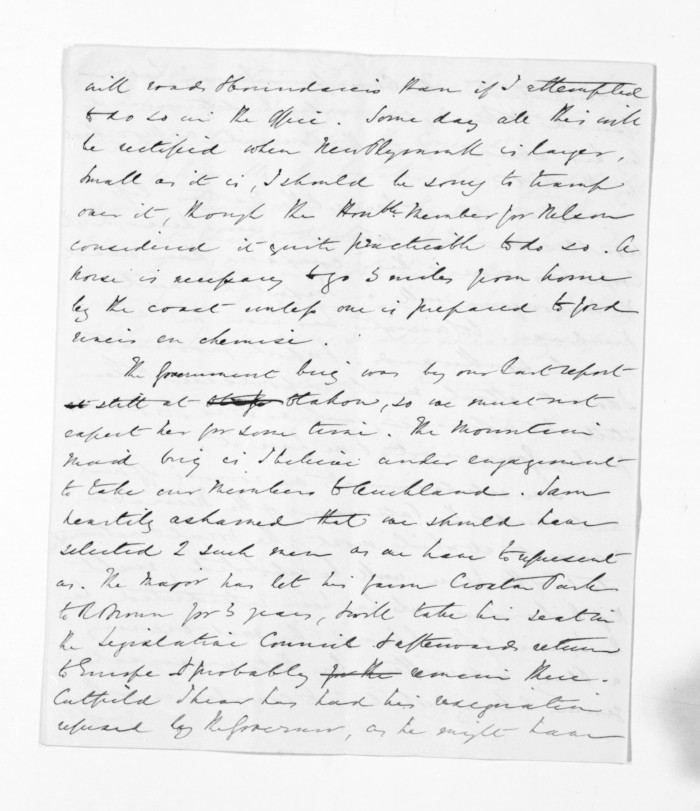 with roads & boundaries than if I attempted
to do so in the office. Some day all this will
be rectified when New Plymouth is larger,
small as it is, I should be sorry to tramp
over it, though the Honble Member for Nelson
considered it quite practicable to do so. A
horse is necessary to go 5 miles from home
by the coast unless one is prepared to ford
rivers en chemise.
The Government brig was by our last report
still at Otahou, so we must not
expect her for some time. The Mountain
Maid brig is I believe under engagement
to take our Members to Auckland. I am
heartily ashamed that we should have
selected 2 such men as we have to represent
us. The Major has let his farm Park
to R Brown for 3 years, & will take his seat in
the Legislative Council & afterwards return
to Europe & probably remain there.
Cutfield I hear has had his resignation
refused by the Governor, as he might have